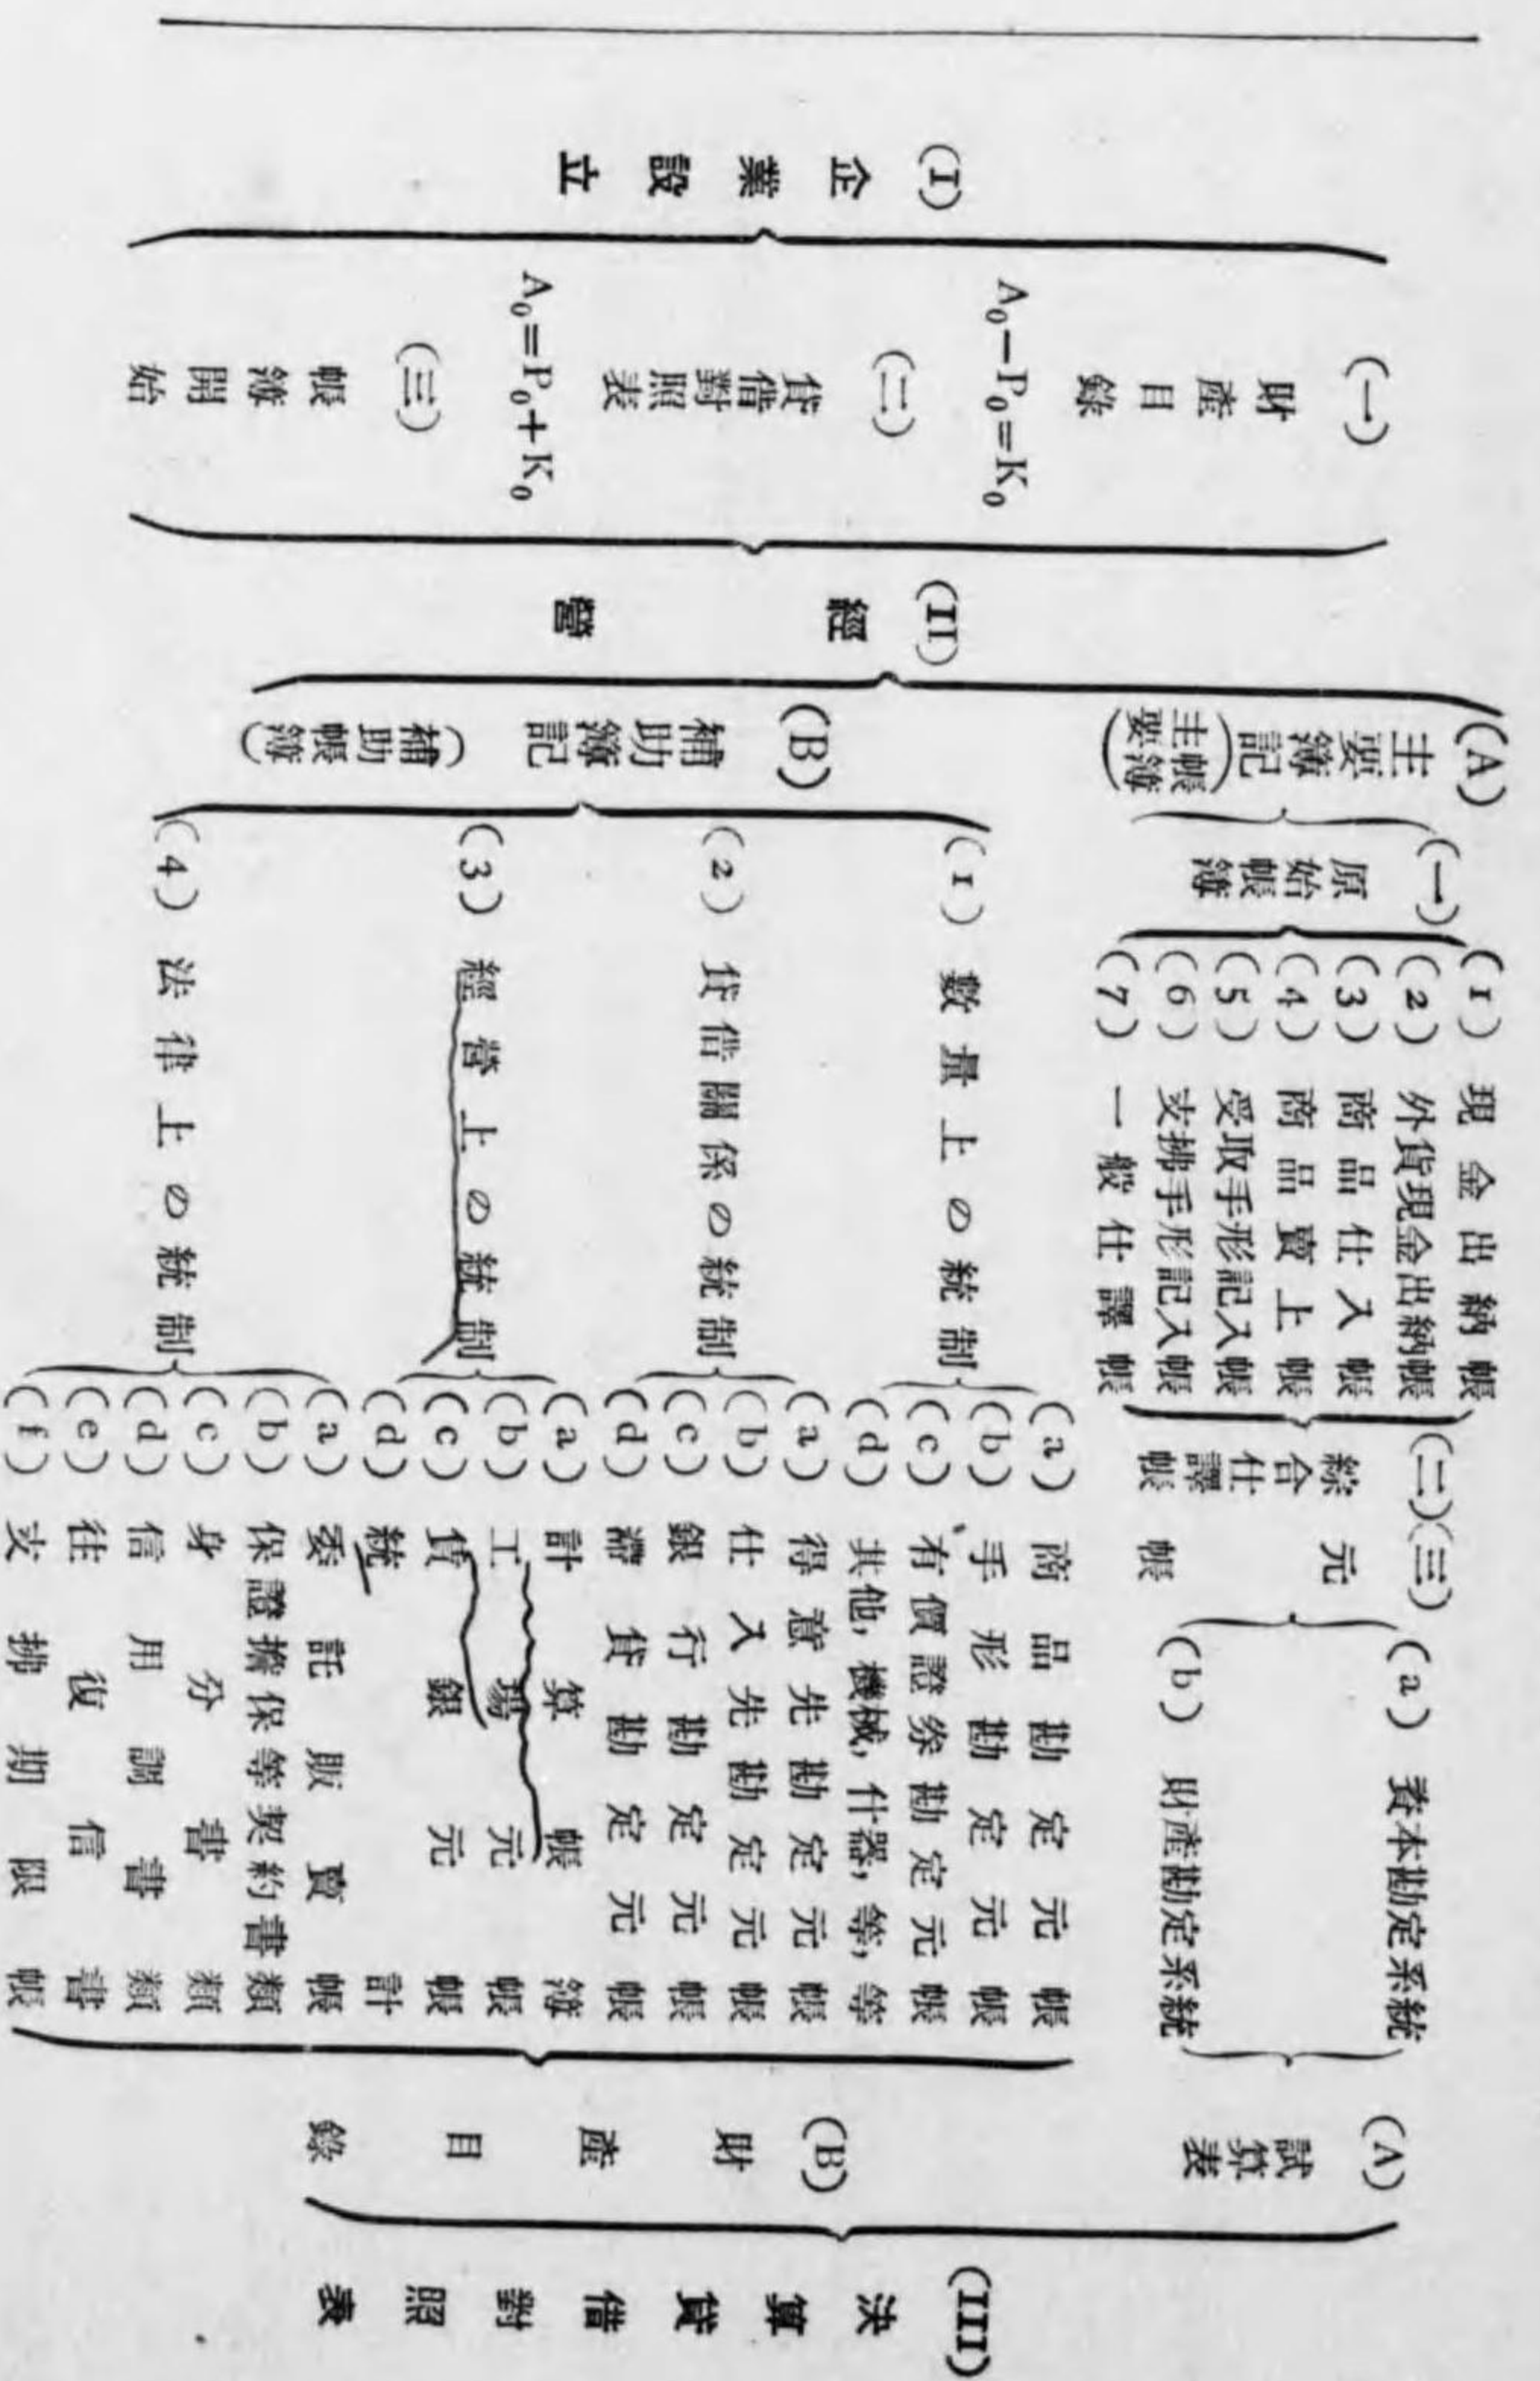 (I) 企業設立
(一) 財產目錄
A₀−P₀=K₀
(二) 貸借對照表
A₀=P₀+K₀
(三) 帳簿開始
(II) 經營
(A) 主要簿記(主要帳簿)
(一) 原始帳簿
(1) 現金出納帳
(2) 外貨現金出納帳
(3) 商品仕入帳
(4) 商品賣上帳
(5) 受取手形記入帳
(6) 支拂手形記入帳
(7) 一般仕譯帳
(二) 綜合仕譯帳
(三) 元帳
(a) 資本勘定系統
(b) 財產勘定系統
(B) 補助簿記(補助帳簿)
(1) 數量上の統制
(a) 商品勘定元帳
(b) 手形勘定元帳
(c) 有價證券勘定元帳
(d) 其他,機械,什器,等,等
(2) 貸借關係の統制
(a) 得意先勘定元帳
(b) 仕入先勘定元帳
(c) 銀行勘定元帳
(d) 滯貸勘定元帳
(3) 經營上の統制
(a) 計算帳簿
(b) 工場元帳
(c) 賃銀元帳
(d) 統計
(4) 法律上の統制
(a) 委託販賣帳
(b) 保證擔保等契約書類
(c) 身分書類
(d) 信用調書類
(e) 往復信書
(f) 支拂期限帳
(A) 試算表
(B) 財產目錄
(III) 決算貸借對照表